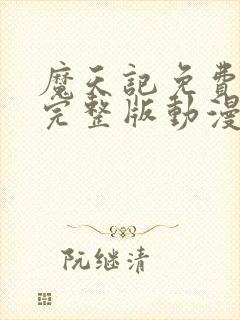 魔天記免費
完整版動漫
阮继清